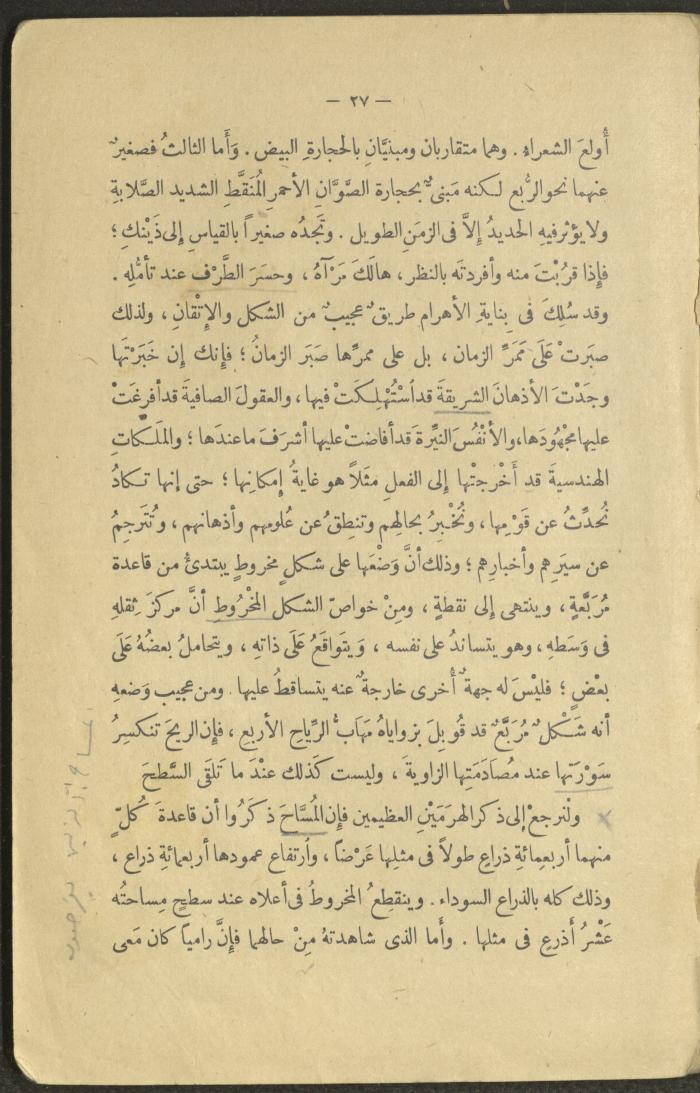 — ٢٧ —
أُولعَ الشعراء . وهما متقاربان ومبنيَّانِ بالحجارةِ البيض . وَأَما الثالثُ فصغيرٌ
عنهما نحو الرُّبع لكنه مَبنىٌّ بحجارة الصَّوَّانِ الأحمرِ المُنَقَّطِ الشديد الصَّلابةِ
ولا يؤثر فيهِ الحديدُ إِلاَّ فى الزمَنِ الطويل . وتَجدُه صغيراً بالقياسِ إلى ذَيْنكِ ؛
فإذا قرُبْتَ منه وأفردتَه بالنظر ، هالَكَ مَرْآهُ ، وحسَرَ الطَّرْف عند تأمُّلِه .
وقد سُلِكَ فى بِنايةِ الأهرام طريقٌ عجيبٌ من الشكل والإِتْقانِ ، ولذلك
صبَرتْ عَلَى مَمَرِّ الزمان ، بل على ممرِّها صَبَر الزمانُ ؛ فإنك إن خَبَرْتَها
وجَدْتَ الأذهانَ الشريفةَ قد اُسْتُهْلِكَتْ فيها ، والعقولَ الصافيةَ قد أفرغَتْ
عليها مجْهُودَها ، والأنْفُسَ النيِّرةَ قد أفاضتْ عليها أشرَفَ ما عندَها ؛ والملَكَاتِ
الهندسيةَ قد أَخْرجتْها إلى الفعلِ مثَلاً هو غايةُ إمكانِها ؛ حتى إنها تكادُ
تُحدِّثُ عن قَوْمِها ، وتُخْبِرُ بحالِهم وتنطِقُ عن عُلومِهم وأذهانهم ، وتُتَرجِمُ
عن سيَرِهم وأخبارِهم ؛ وذلك أنَّ وَضْعَها على شكلٍ مخروطٍ يبتدئُ من قاعدة
مُرَبَّعةٍ ، وينتهى إلى نقطةٍ ، ومِنْ خواصّ الشكلِ المخْرُوطِ أنَّ مركزَ ثِقلهِ
فى وَسَطهِ ، وهو يتساندُ على نفسه ، وَيتَواقَعُ عَلَى ذاتهِ ، ويتحاملُ بعضُهُ عَلَى
بعْضٍ ؛ فليْسَ له جهةٌ أُخرى خارجةٌ عنه يتساقطُ عليها . ومن عجيب وَضعهِ
أنه شَكْلٌ مُرَبَّعٌ قد قُوبِلَ بزواياهُ مهَابُّ الرِّياحِ الأربعِ ، فإن الريحَ تَنكسِرُ
سَوْرَتها عند مُصَادَمَتِها الزاويةَ ، وليست كَذلك عنْدَ ما تَلقَى السَّطحَ
ولْنرجعْ إلى ذكر الهرَمَيْنِ العظيمين فإِن المُسَّاحَ ذكَرُوا أن قاعدةَ كُلّ
منهما أربعِمائةِ ذراعٍ طولاً فى مثلِها عَرْضاً ، واُرتفاع عمودها أربعمائةِ ذراع ،
وذلك كله بالذراع السوداء . وينقطِعُ المخروطُ فى أعلاه عند سطحٍ مِساحتُه
عَشْرُ أَذرعٍ فى مثلها . وأَما الذى شاهدتهُ مِنْ حالهما فإِنَّ رامياً كان مَعى